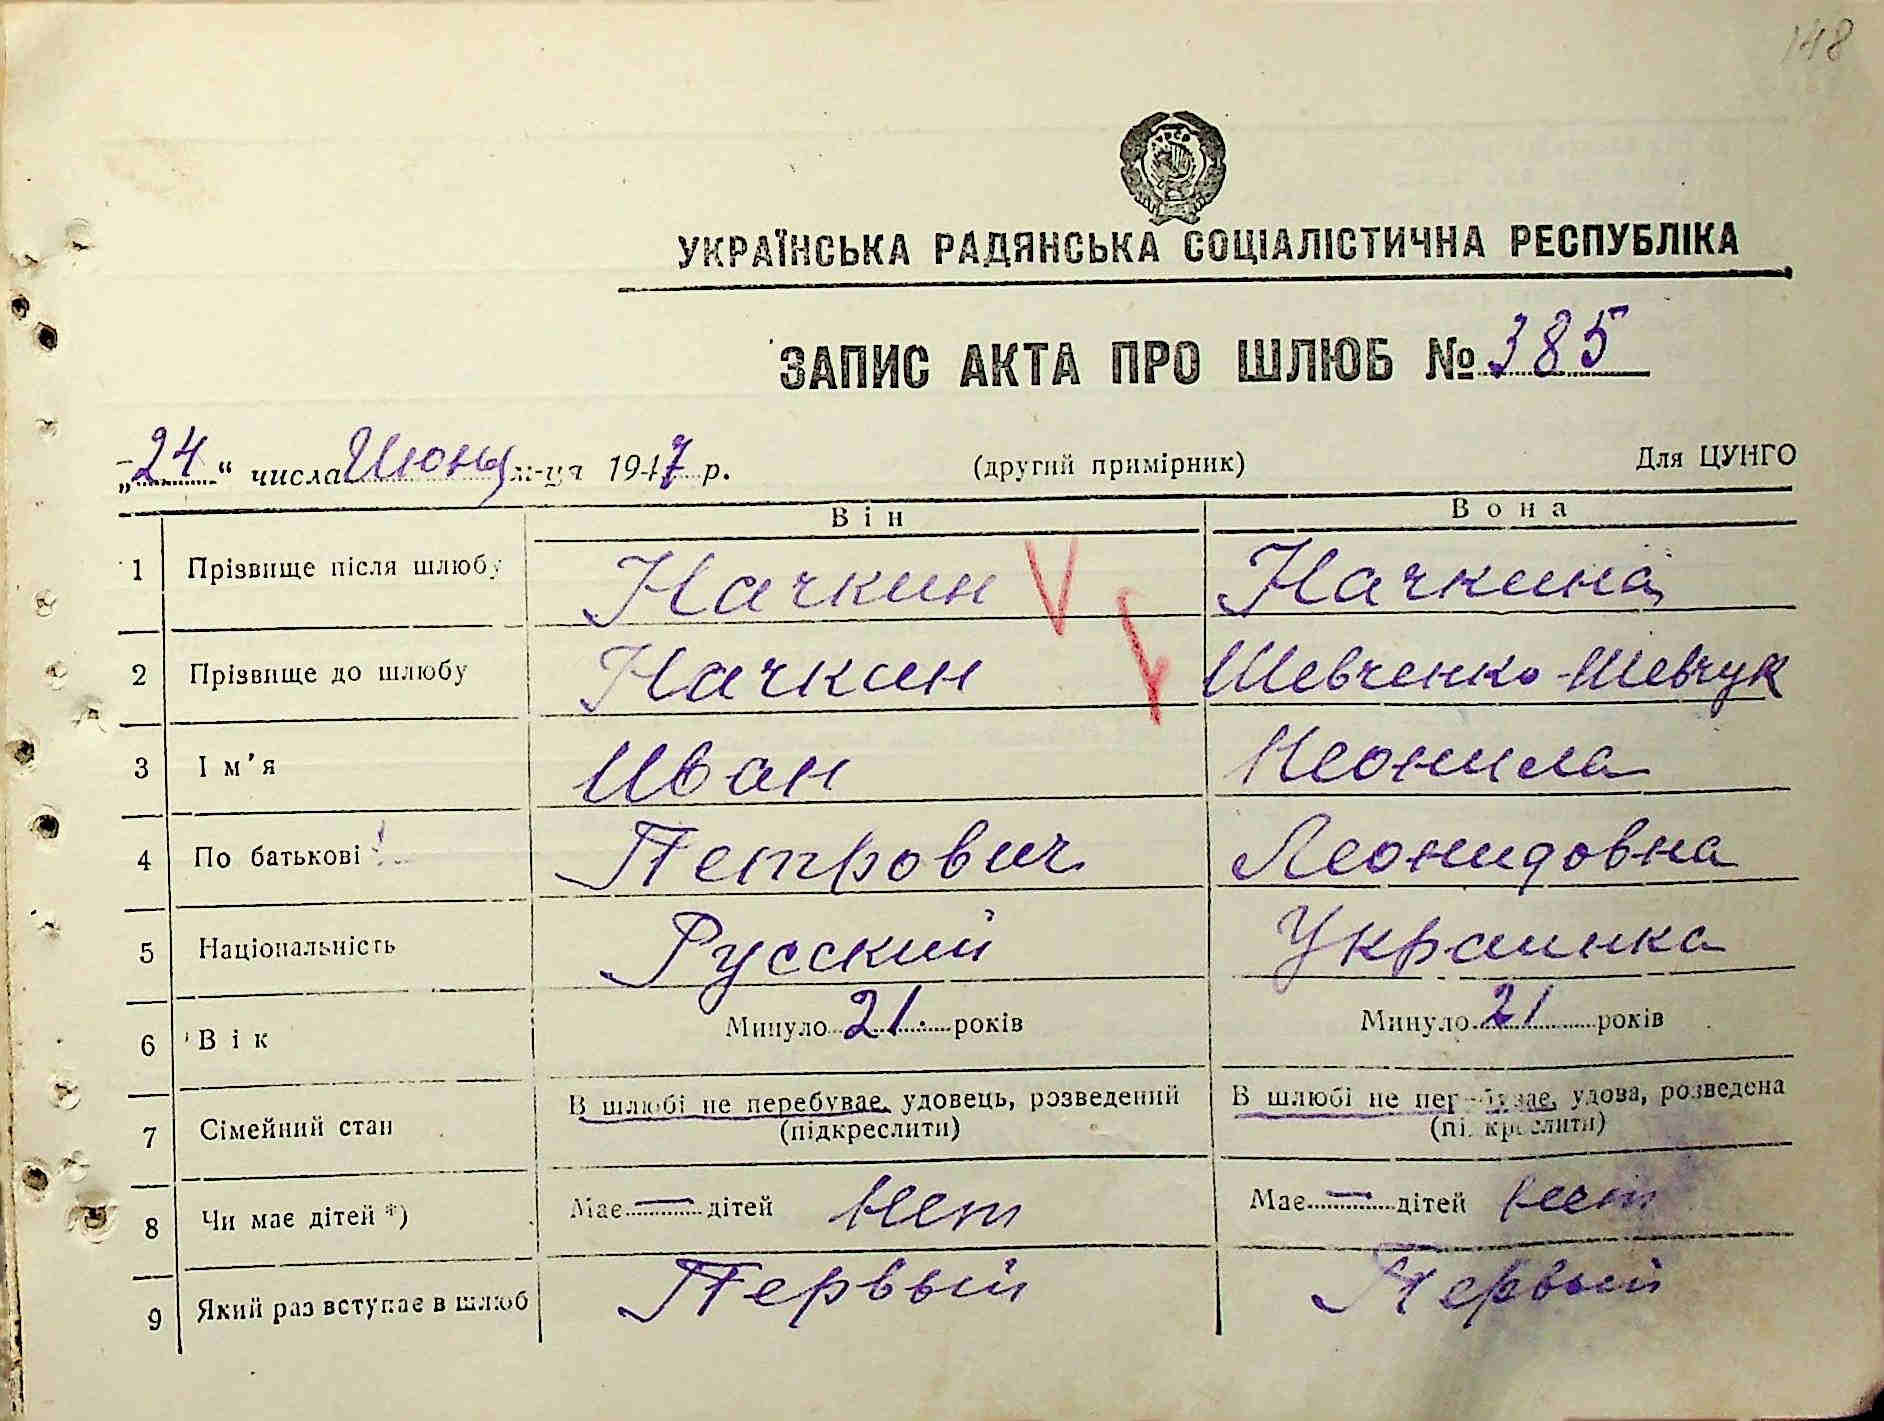 148
УКРАЇНСЬКА РАДЯНСЬКА СОЦІАЛІСТИЧНА РЕСПУБЛІКА
ЗАПИС АКТА ПРО ШЛЮБ № 385
„24“ числа Июня м-ця 1947 р. (другий примірник) Для ЦУНГО
Він Вона
1 Прізвище після шлюбу Начкин Начкина
2 Прізвище до шлюбу Начкин Шевченко-Шевчук
3 Ім'я Иван Неонила
4 По батькові Петрович Леонидовна
5 Національність Русский Украинка
6 Вік Минуло 21 років Минуло 21 років
7 Сімейний стан В шлюбі не перебуває, удовець, розведений В шлюбі не перебуває, удова, розведена
(підкреслити) (підкреслити)
8 Чи має дітей *) Має — дітей Нет Має — дітей Нет
9 Який раз вступає в шлюб Первый Первый